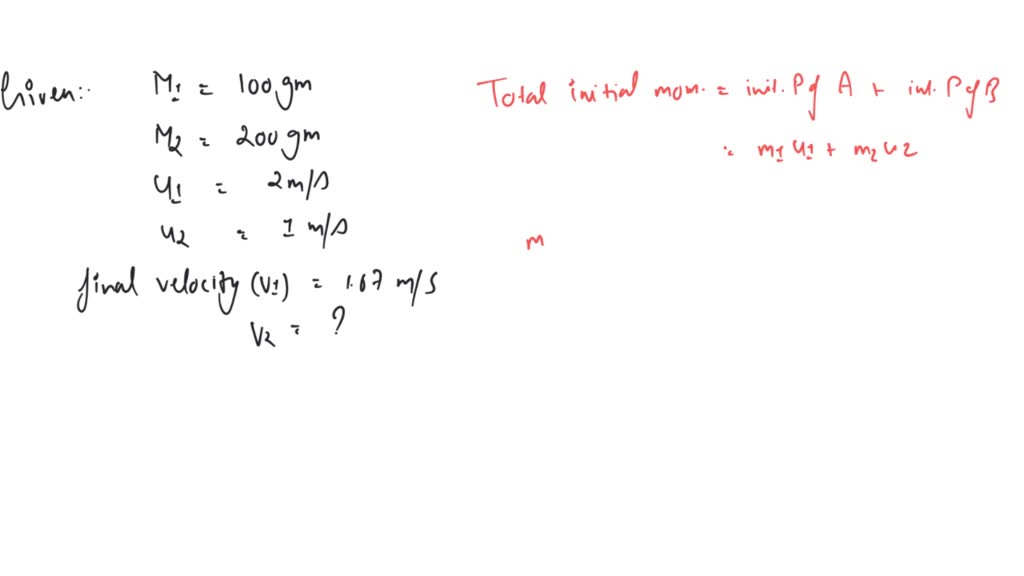 Given:-
M1 = 100 gm
M2 = 200 gm
u1 = 2 m/s
u2 = 1 m/s
final velocity (V1) = 1.67 m/s
V2 = ?
Total initial mom. = init. P of A + int. P of B
= m1 u1 + m2 u2
m